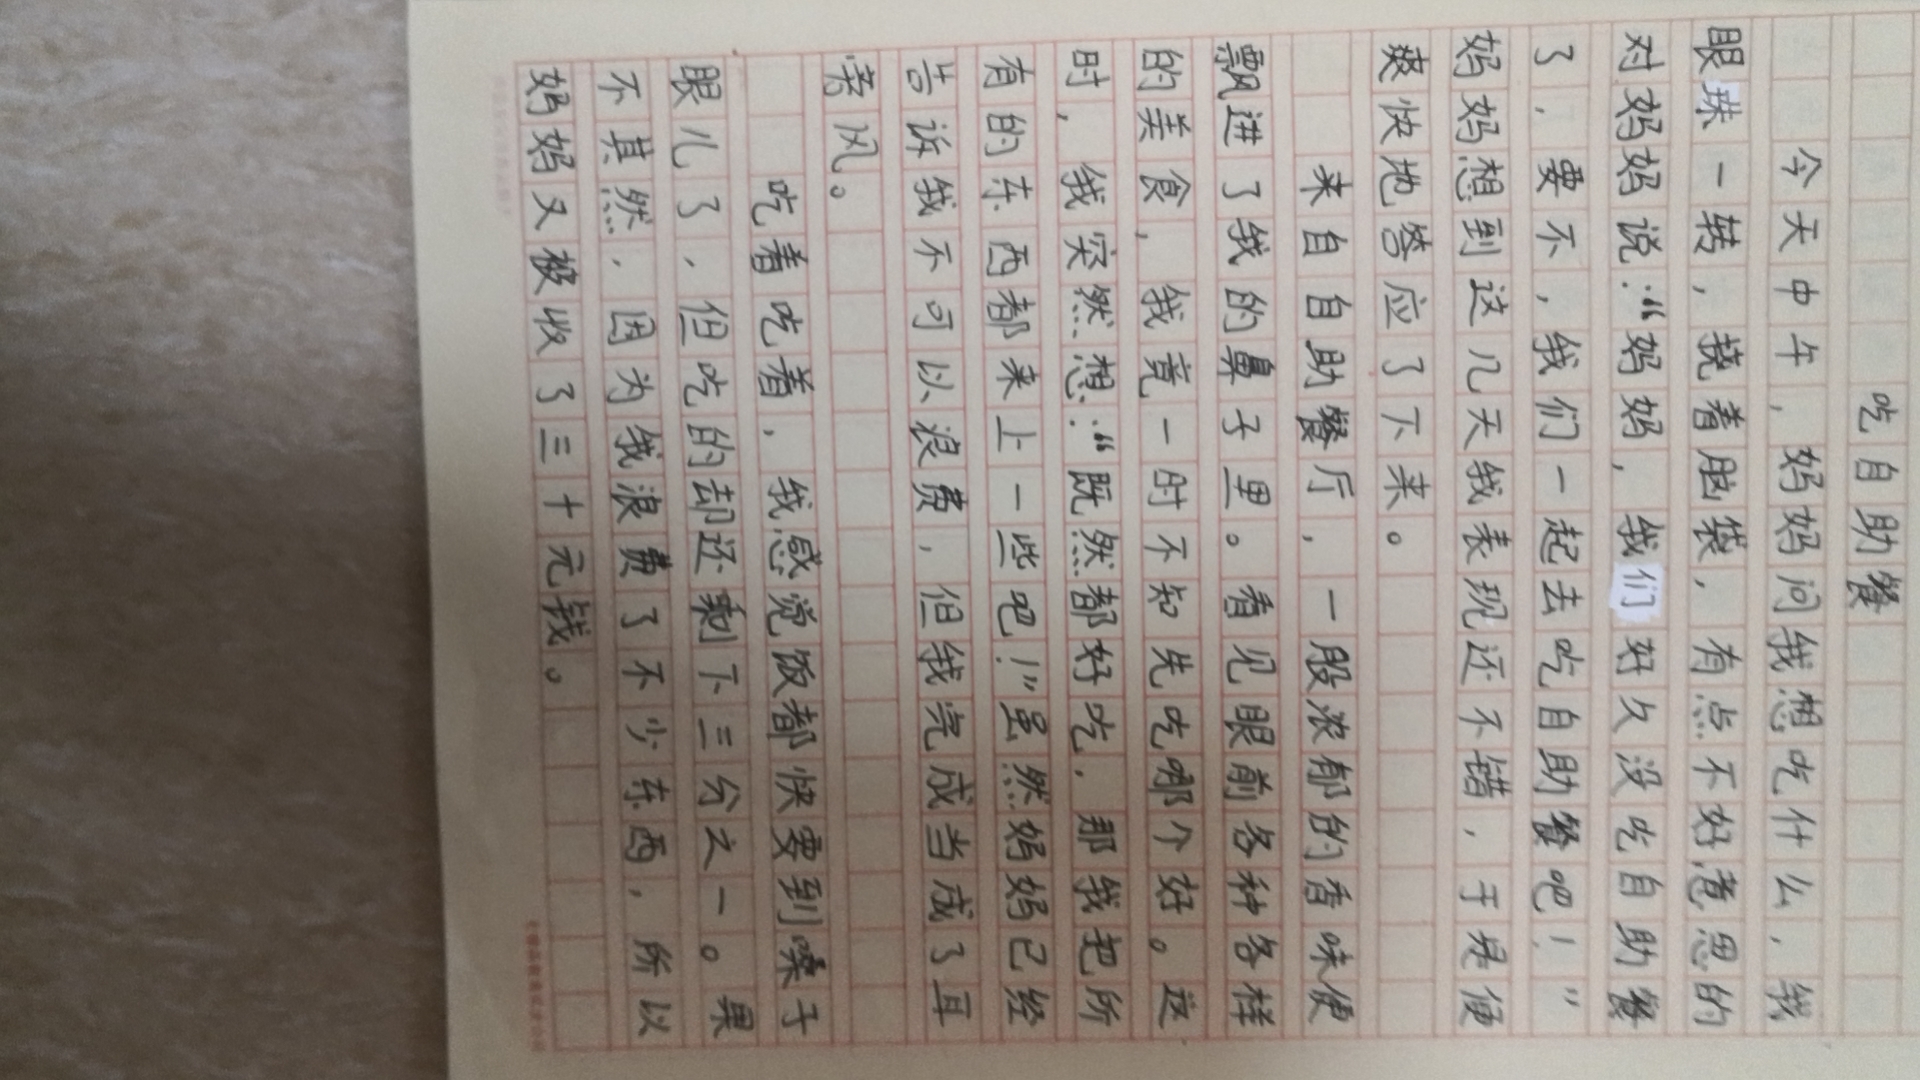 吃自助餐
今天中午，妈妈问我想吃什么，我
眼珠一转，挠着脑袋，有点不好意思的
对妈妈说：“妈妈，我们好久没吃自助餐
了，要不，我们一起去吃自助餐吧！”
妈妈想到这几天我表现还不错，于是便
爽快地答应了下来。
来自自助餐厅，一股浓郁的香味便
飘进了我的鼻子里。看见眼前各种各样
的美食，我竟一时不知先吃哪个好。这
时，我突然想：“既然都好吃，那我把所
有的东西都来上一些吧！”虽然妈妈已经
告诉我不可以浪费，但我完成当成了耳
旁风。
吃着吃着，我感觉饭都快要到嗓子
眼儿了，但吃的却还剩下三分之一。果
不其然，因为我浪费了不少东西，所以
妈妈又被收了三十元钱。